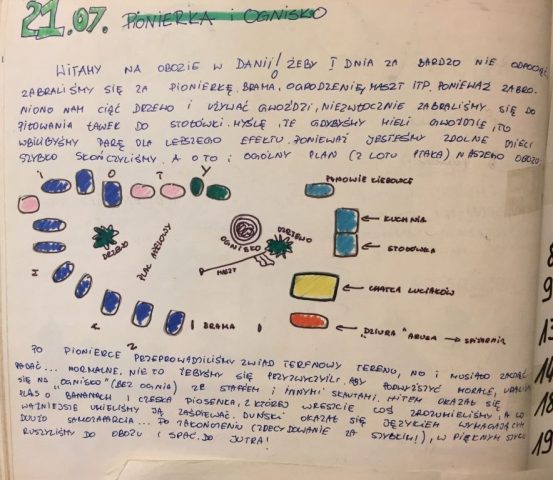 21.07. PIONIERKA i OGNISKO
WITAMY NA OBOZIE W DANII! ŻEBY I DNIA ZA BARDZO NIE ODPOCZĄĆ
ZABRALIŚMY SIĘ ZA PIONIERKĘ. BRAMA, OGRODZENIE, MASZT ITP. PONIEWAŻ ZABRO-
NIONO NAM CIĄĆ DRZEWO I UŻYWAĆ GWOŹDZI, NIEZWŁOCZNIE ZABRALIŚMY SIĘ DO
ŁAWEK DO STOŁÓWKI. MYŚLĘ, ŻE GDYBYŚMY MIELI GWOŹDZIE, TO
WBILIBYŚMY PARĘ DLA LEPSZEGO EFEKTU. PONIEWAŻ JESTEŚMY ZDOLNE DZIECI
SZYBKO SKOŃCZYLIŚMY. A OTO I OGÓLNY PLAN (Z LOTU PTAKA) NASZEGO OBOZU.
N A M I O T Y
DRZEWO
PLAC APELOWY
OGNISKO
DRZEWO
MASZT
KUCHNIA
STOŁÓWKA
CHATKA
BRAMA
"DZIURA" → SPIŻARNIA
PO PIONIERCE PRZEPROWADZILIŚMY ZWIAD TERENOWY TERENU, NO I MUSIAŁO ZACZĄĆ
PADAĆ... NORMALNE. NIE TO ŻEBYŚMY SIĘ PRZYZWYCZILI. ABY PODWYŻSZYĆ MORALE,
SIĘ NA "OGNISKO" (BEZ OGNIA) ZE STAFFEM I INNYMI SKAUTAMI. HITEM OKAZAŁ SIĘ
PLĄS O BANANACH I CZESKA PIOSENKA, Z KTÓREJ WRESZCIE COŚ ZROZUMIELIŚMY, A CO
WAŻNIEJSZE UMIELIŚMY JĄ ZAŚPIEWAĆ. DUŃSKI OKAZAŁ SIĘ JĘZYKIEM WYMAGAJĄCYM
DUŻO SAMOZAPARCIA... PO ZAKOŃCZENIU (ZDECYDOWANIE ZA SZYBKIM!), W PIĘKNYM
RUSZYLIŚMY DO OBOZU I SPAĆ. DO JUTRA!
8
9
13
14
18
19